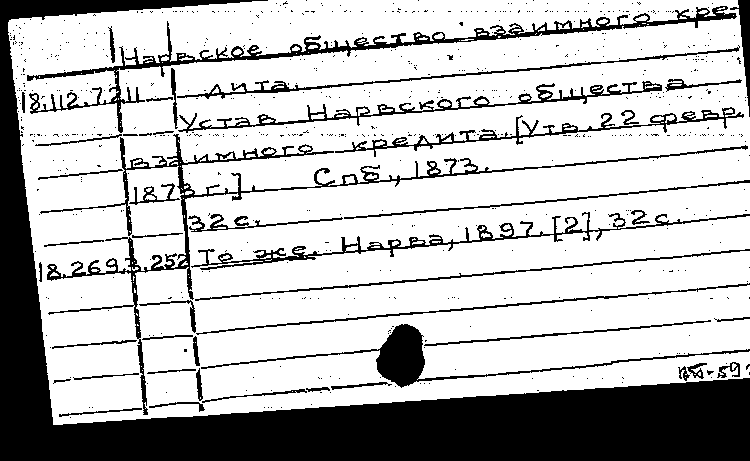 Нарвское общество взаимного кре-
дита.
18.112.7.211
Устав Нарвского общества
взаимного кредита. [Утв. 22 февр.
1873 г.]. Спб., 1873.
32 с.
18.269.3.252 То же. Нарва, 1897. [2], 32 с.